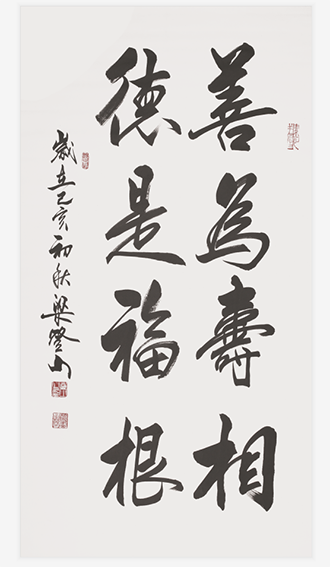 善為壽相
德是福根
歲在己亥初秋梁登山